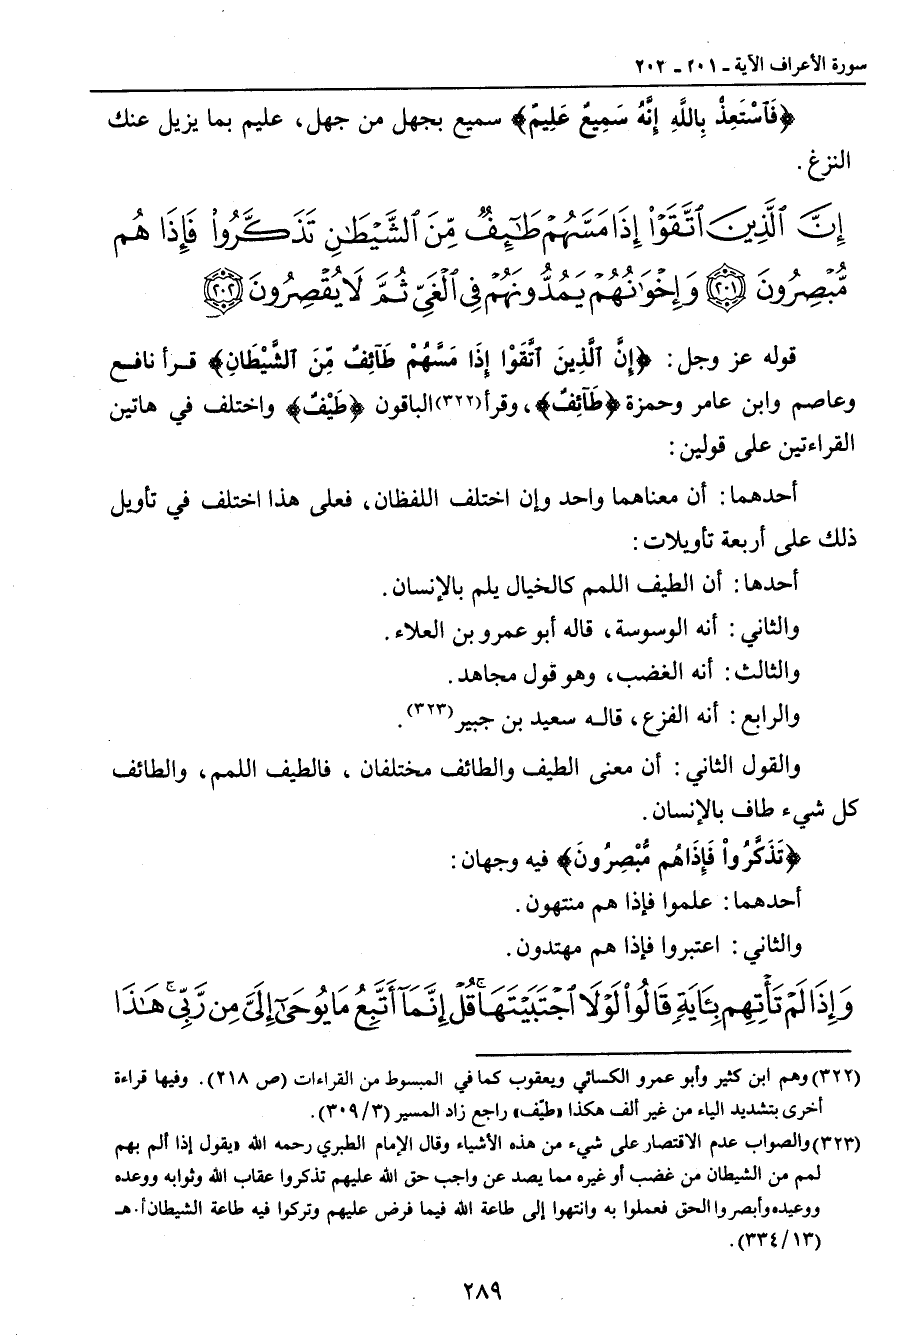 سورة الأعراف الآية ـ ٢٠١ ـ ٢٠٢
﴿فَٱسْتَعِذْ بِاللَّهِ إِنَّهُ سَمِيعٌ عَلِيمٌ﴾ سميع بجهل من جهل، عليم بما يزيل عنك
النزغ.
إِنَّ ٱلَّذِينَ ٱتَّقَوْا۟ إِذَا مَسَّهُمْ طَـٰٓئِفٌ مِّنَ ٱلشَّيْطَـٰنِ تَذَكَّرُوا۟ فَإِذَا هُم
مُّبْصِرُونَ ﴿٢٠١﴾ وَإِخْوَٰنُهُمْ يَمُدُّونَهُمْ فِى ٱلْغَىِّ ثُمَّ لَا يُقْصِرُونَ ﴿٢٠٢﴾
قوله عز وجل: ﴿إِنَّ الَّذِينَ اتَّقَوْا إِذَا مَسَّهُمْ طَآئِفٌ مِّنَ الشَّيْطَانِ﴾ قرأ نافع
وعاصم وابن عامر وحمزة ﴿طَآئِفٌ﴾، وقرأ(٣٢٢) الباقون ﴿طَيْفٌ﴾ واختلف في هاتين
القراءتين على قولين:
أحدهما: أن معناهما واحد وإن اختلف اللفظان، فعلى هذا اختلف في تأويل
ذلك على أربعة تأويلات:
أحدها: أن الطيف اللمم كالخيال يلم بالإنسان.
والثاني: أنه الوسوسة، قاله أبو عمرو بن العلاء.
والثالث: أنه الغضب، وهو قول مجاهد.
والرابع: أنه الفزع، قاله سعيد بن جبير(٣٢٣).
والقول الثاني: أن معنى الطيف والطائف مختلفان، فالطيف اللمم، والطائف
كل شيء طاف بالإنسان.
﴿تَذَكَّرُواْ فَإِذَاهُم مُّبْصِرُونَ﴾ فيه وجهان:
أحدهما: علموا فإذا هم منتهون.
والثاني: اعتبروا فإذا هم مهتدون.
وَإِذَا لَمْ تَأْتِهِم بِـَٔايَةٍ قَالُوا۟ لَوْلَا ٱجْتَبَيْتَهَا ۚ قُلْ إِنَّمَآ أَتَّبِعُ مَا يُوحَىٰٓ إِلَىَّ مِن رَّبِّى ۚ هَـٰذَا
(٣٢٢) وهم ابن كثير وأبو عمرو الكسائي ويعقوب كما في المبسوط من القراءات (ص ٢١٨). وفيها قراءة
أخرى بتشديد الياء من غير ألف هكذا «طيّف» راجع زاد المسير (٣٠٩/٣).
(٣٢٣) والصواب عدم الاقتصار على شيء من هذه الأشياء وقال الإمام الطبري رحمه الله «يقول إذا ألم بهم
لمم من الشيطان من غضب أو غيره مما يصد عن واجب حق الله عليهم تذكروا عقاب الله وثوابه ووعده
ووعيده وأبصروا الحق فعملوا به وانتهوا إلى طاعة الله فيما فرض عليهم وتركوا فيه طاعة الشيطان أ.هـ
(٣٣٤/١٣).
٢٨٩